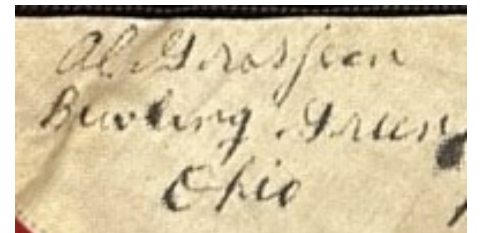 Al. Grosjean
Bowling Green
Ohio